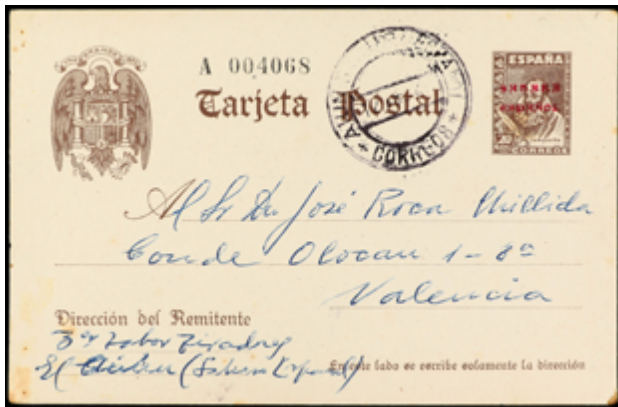 A 004068
Tarjeta Postal
ESPAÑA
CORREOS
CORREOS
Al Sr Dn José Roca Chillida
Conde Olocau 1-8º
Valencia
Dirección del Remitente
3er Tabor Tiradores
El (Sahara Español)
En este lado se escribe solamente la dirección